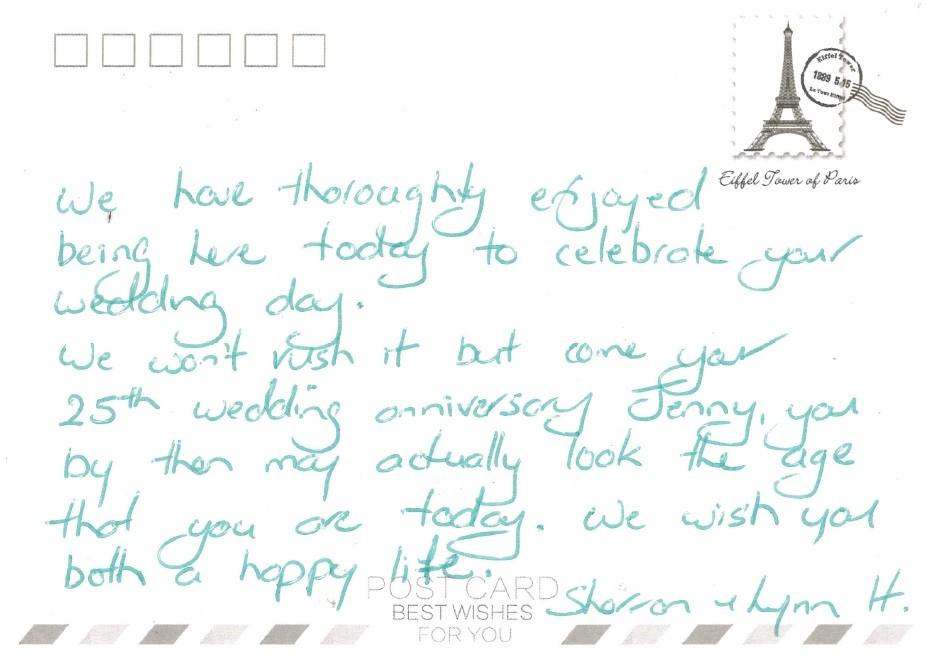 Eiffel Tower
1889 5.15
La Tour Eiffel
Eiffel Tower of Paris
We have thoroughly enjoyed
being here today to celebrate your
wedding day.
We won't rush it but come your
25th wedding anniversary Jenny, you
by then may actually look the age
that you are today. We wish you
both a happy life.
Sharron & Lynn H.
POST CARD
BEST WISHES
FOR YOU